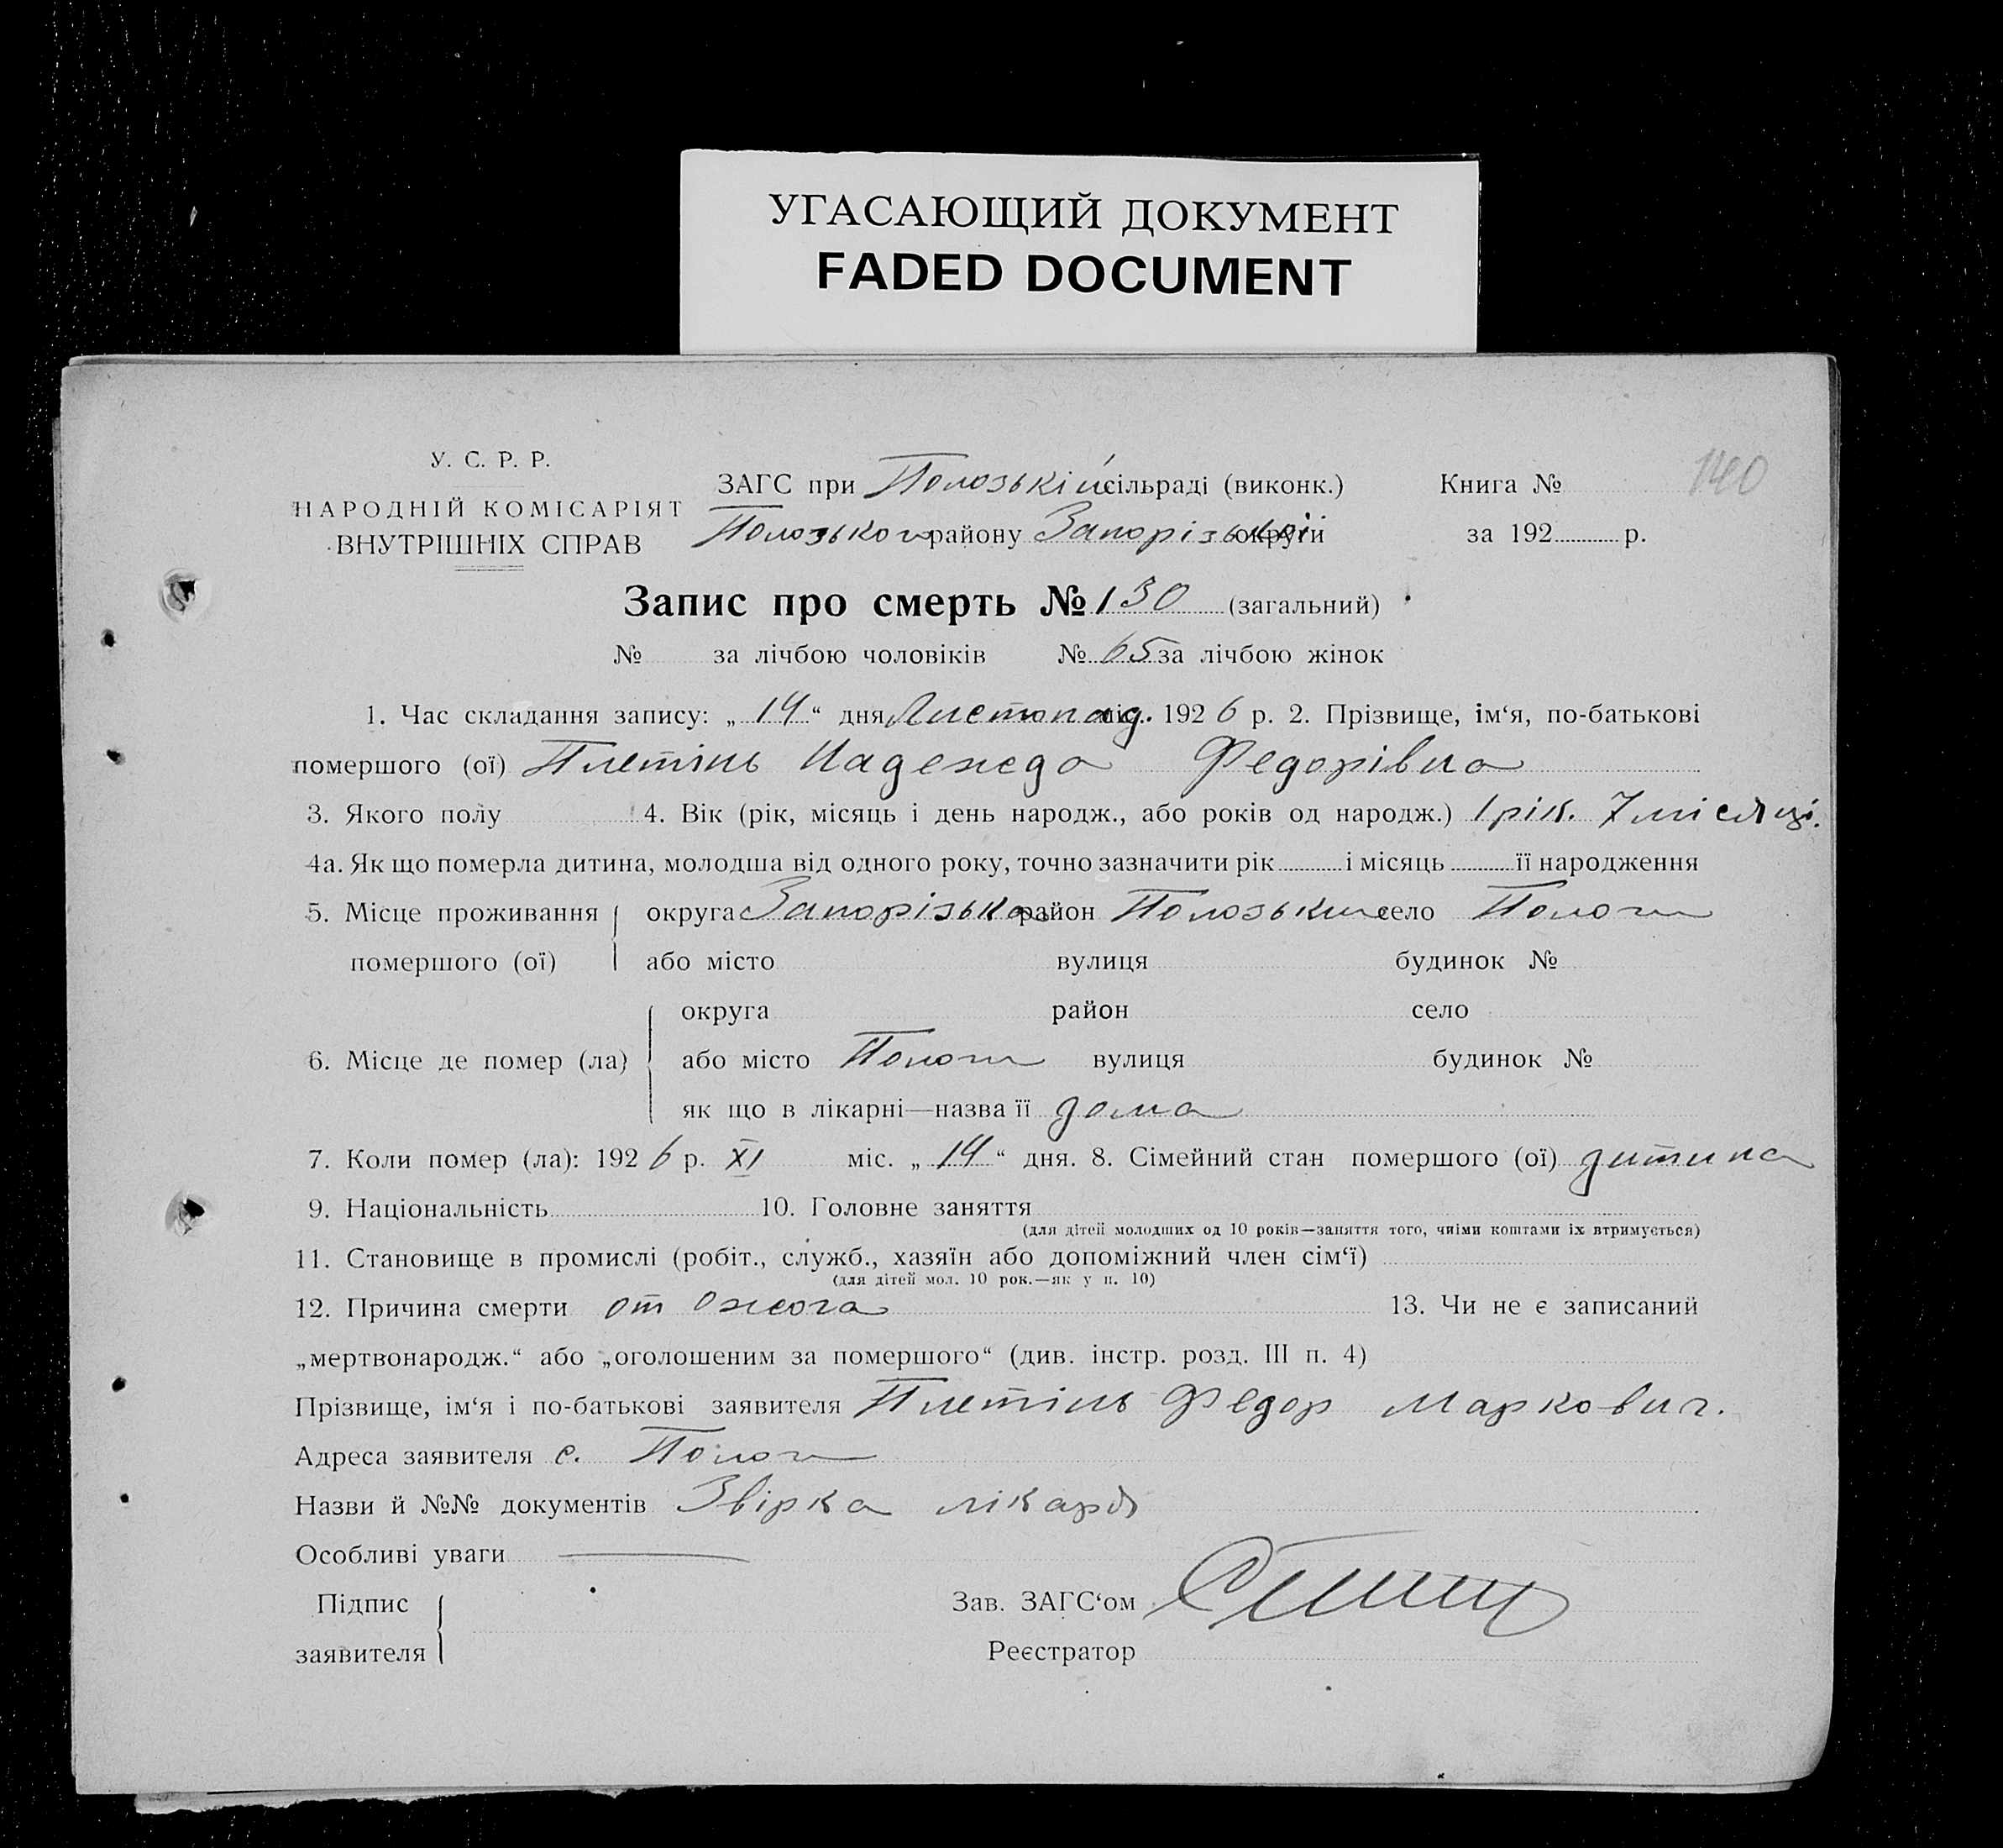 УГАСАЮЩИЙ ДОКУМЕНТ
FADED DOCUMENT
140
У. С. Р. Р.
НАРОДНІЙ КОМІСАРІЯТ
ВНУТРІШНІХ СПРАВ
ЗАГС при Полозькій сільраді (виконк.) Книга №
Полозького району Запорізької округи за 192 р.
Запис про смерть № 130 (загальний)
№ за лічбою чоловіків № 65 за лічбою жінок
1. Час складання запису: „ 14 “ дня Листопад. міс. 1926 р. 2. Прізвище, ім‘я, по-батькові
помершого (ої) Плетінь Надежда Федорівна
3. Якого полу 4. Вік (рік, місяць і день народж., або років од народж.) 1 рік. 7 місяці.
4а. Як що померла дитина, молодша від одного року, точно зазначити рік і місяць її народження
5. Місце проживання округа Запорізька район Полозький село Пологи
помершого (ої) або місто вулиця будинок №
округа район село
6. Місце де помер (ла) або місто Пологи вулиця будинок №
як що в лікарні—назва її дома
7. Коли помер (ла): 1926 р. XI міс. „ 14 “ дня. 8. Сімейний стан помершого (ої) дитина
9. Національність 10. Головне заняття
(для дітей молодших од 10 років—заняття того, чиїми коштами їх втримується)
11. Становище в промислі (робіт., служб., хазяїн або допоміжний член сім‘ї)
(для дітей мол. 10 рок.—як у п. 10)
12. Причина смерти от ожога 13. Чи не є записаний
„мертвонародж.“ або „оголошеним за помершого“ (див. інстр. розд. III п. 4)
Прізвище, ім‘я і по-батькові заявителя Плетінь Федор Маркович.
Адреса заявителя с. Пологи
Назви й №№ документів Звірка лікаря
Особливі уваги
Підпис Зав. ЗАГС‘ом
заявителя Реєстратор